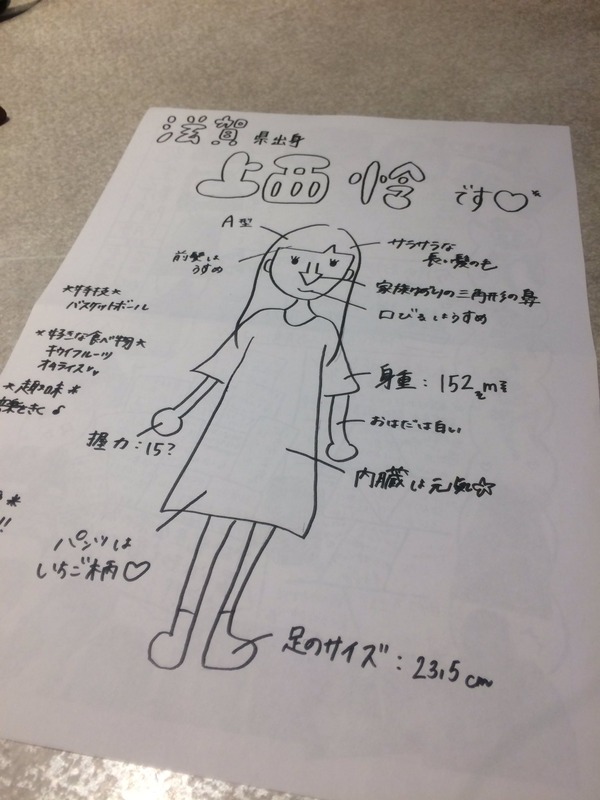 滋賀県出身
上西恰です♡
A型
前髪は
うすめ
サラサラな
長い髪のも
家族ゆずりの三角形の鼻
口びるはうすめ
*特技*
バスケットボール
*好きな食べ物*
キウイフルーツ
オムライス♡♡
*趣味*
楽をきく♪
身重:152cm
おはだは白い
握力:15?
内臓は元気☆
パンツは
いちご柄♡
足のサイズ:23.5cm
*
!!